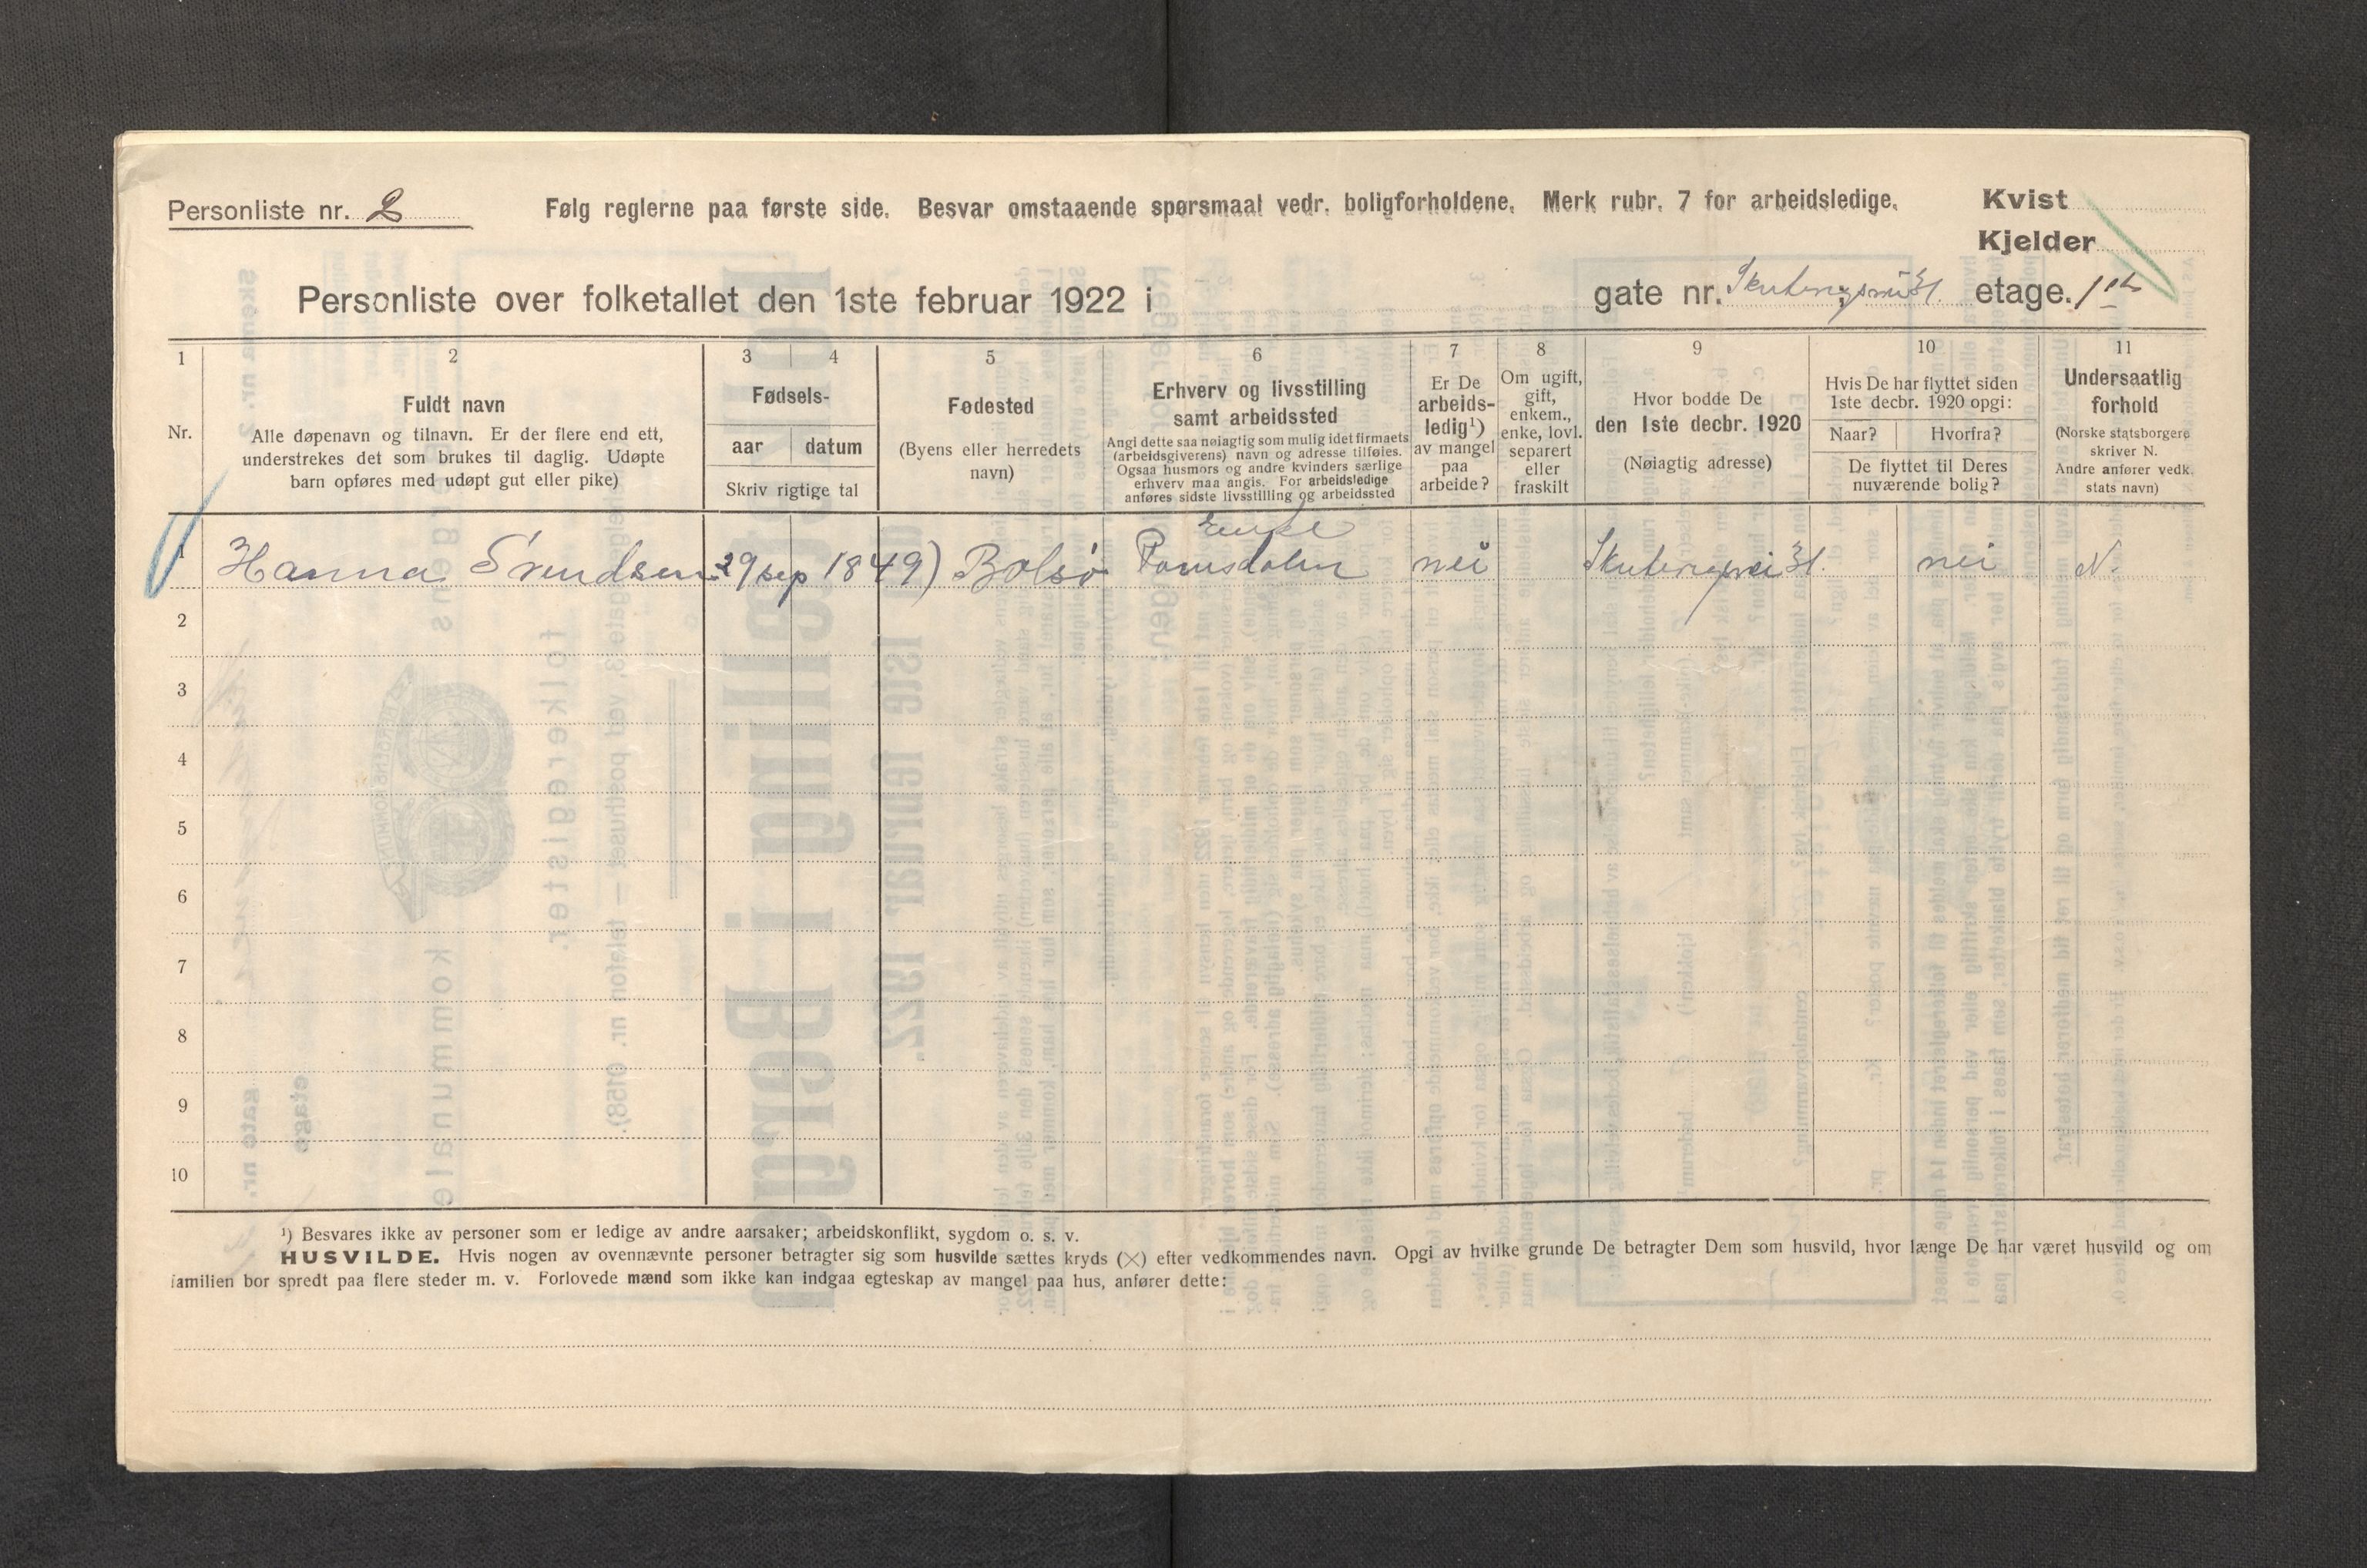 Personliste nr. 2
Følg reglerne paa første side. Besvar omstaaende spørsmaal vedr. boligforholdene. Merk rubr. 7 for arbeidsledige.
Kvist
Kjelder
Personliste over folketallet den 1ste februar 1922 i gate nr. etage. 1ste
1 2 3 4 5 6 7 8 9 10 11
Nr.
Fuldt navn
Alle døpenavn og tilnavn. Er der flere end ett,
understrekes det som brukes til daglig. Udøpte
barn opføres med udøpt gut eller pike)
Fødsels-
aar datum
Skriv rigtige tal
Fødested
(Byens eller herredets
navn)
Erhverv og livsstilling
samt arbeidssted
Angi dette saa nøiagtig som mulig idet firmaets
(arbeidsgiverens) navn og adresse tilføies.
Ogsaa husmors og andre kvinders særlige
erhverv maa angis. For arbeidsledige
anføres sidste livsstilling og arbeidssted
Er De
arbeids-
ledig¹)
av mangel
paa
arbeide?
Om ugift,
gift,
enkem.,
enke, lovl.
separert
eller
fraskilt
Hvor bodde De
den 1ste decbr. 1920
(Nøiagtig adresse)
Hvis De har flyttet siden
1ste decbr. 1920 opgi:
Naar? Hvorfra?
De flyttet til Deres
nuværende bolig?
Undersaatlig
forhold
(Norske statsborgere
skriver N.
Andre anfører vedk.
stats navn)
Enke
1 Hanna Svendsen 29 sep 1849) Bolsø Romsdalen nei Skutevigsvei 31. nei N.
2
3
4
5
6
7
8
9
10
¹) Besvares ikke av personer som er ledige av andre aarsaker; arbeidskonflikt, sygdom o. s. v.
HUSVILDE. Hvis nogen av ovennævnte personer betragter sig som husvilde sættes kryds (×) efter vedkommendes navn. Opgi av hvilke grunde De betragter Dem som husvild, hvor længe De har været husvild og om
familien bor spredt paa flere steder m. v. Forlovede mænd som ikke kan indgaa egteskap av mangel paa hus, anfører dette: